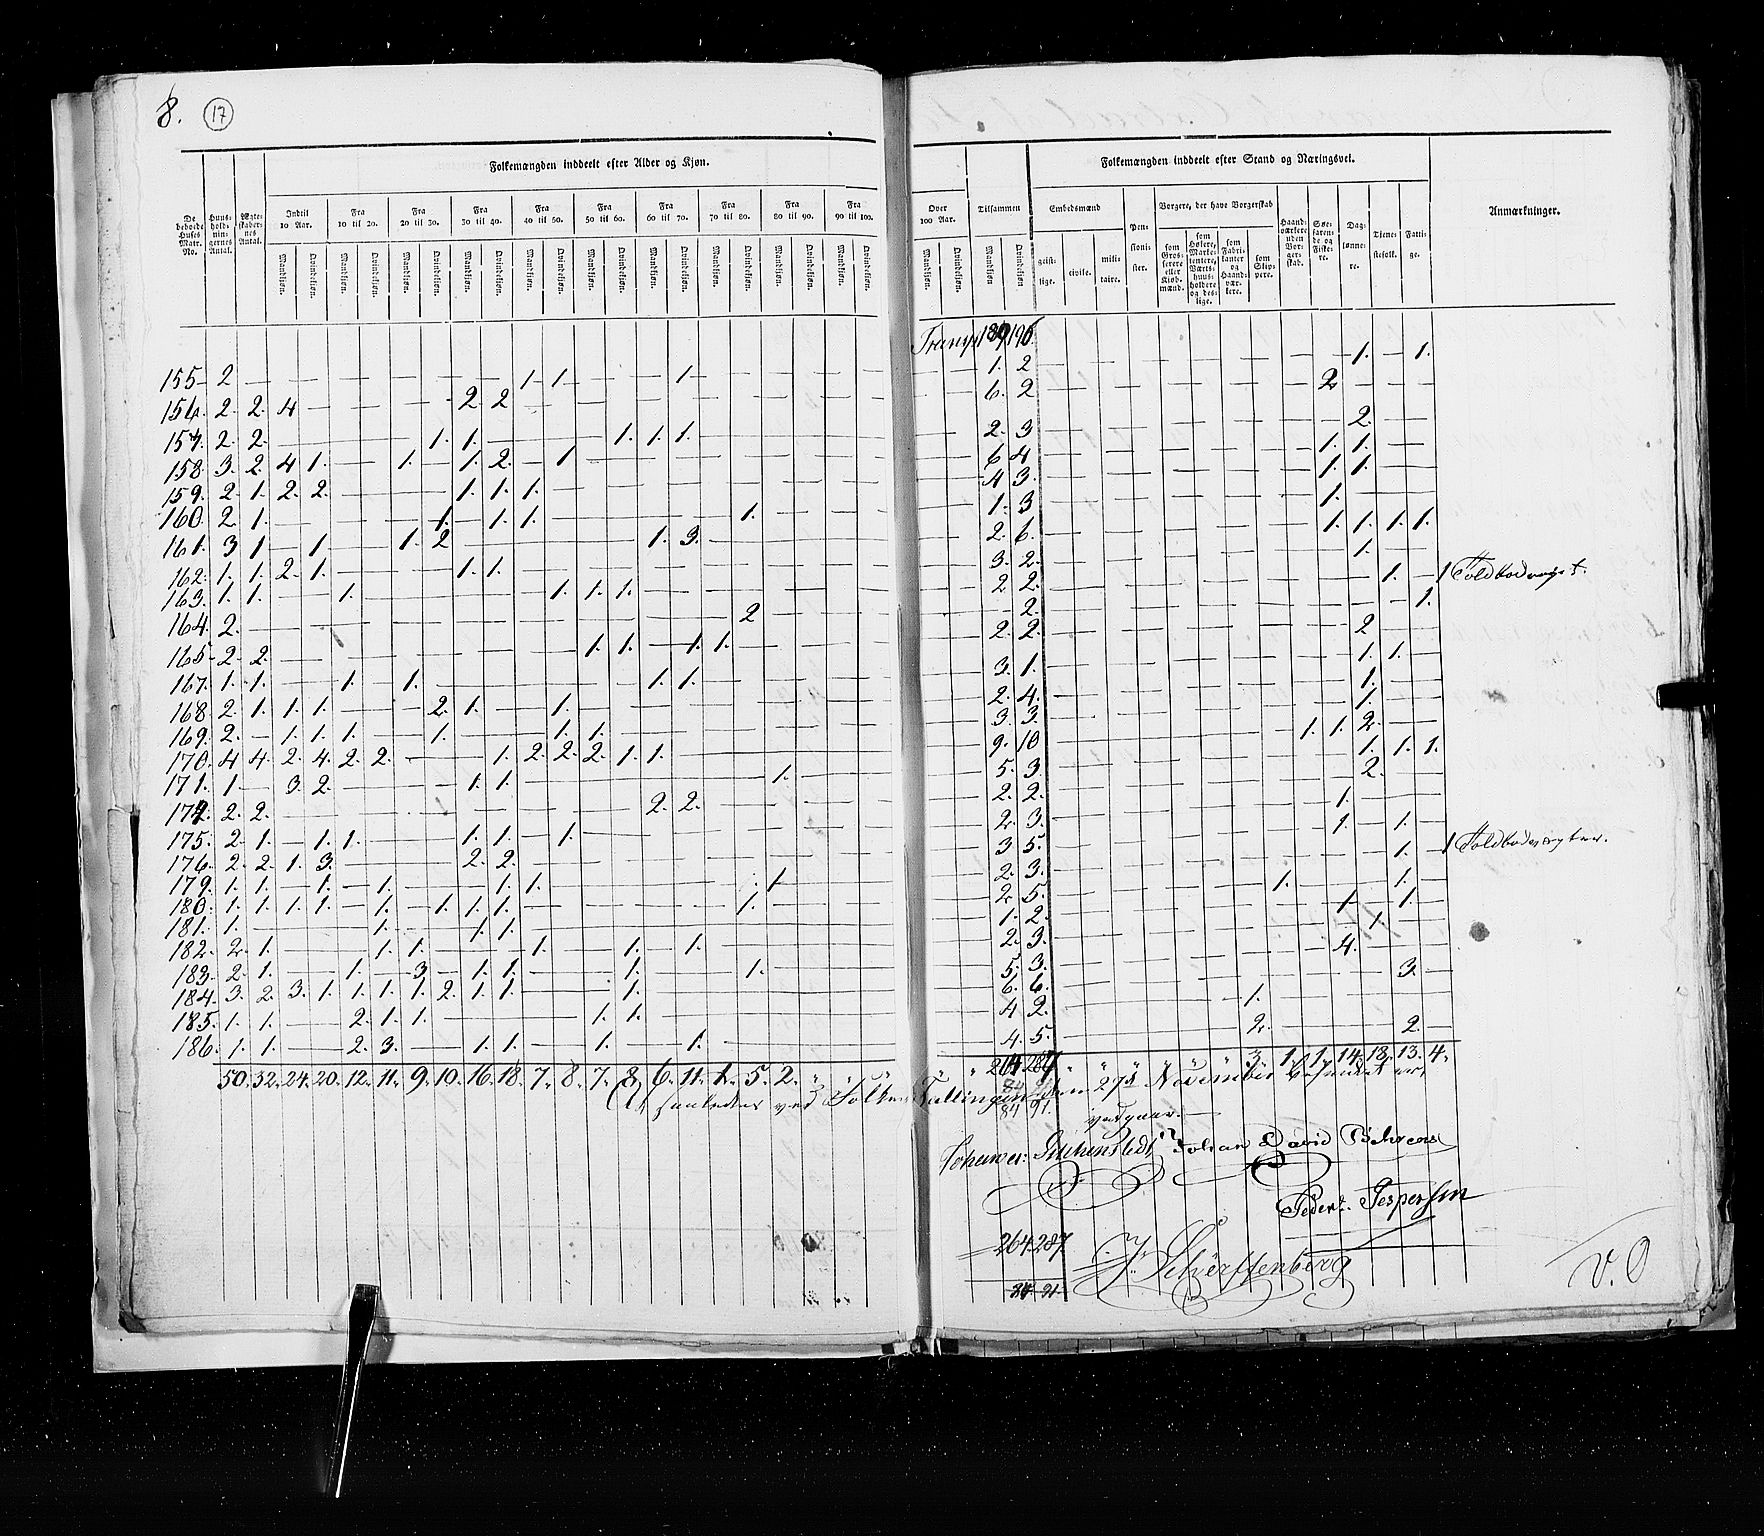 8. 17
Folkemængden inddeelt efter Alder og Kjøn.
De beboede Huses Matr. No.
Huus-holdnin-gernes Antal.
Ægte-skaber-nes Antal.
Indtil 10 Aar. Fra 10 til 20. Fra 20 til 30. Fra 30 til 40. Fra 40 til 50. Fra 50 til 60. Fra 60 til 70. Fra 70 til 80. Fra 80 til 90. Fra 90 til 100.
Mandkjøn. Qvindekjøn. Mandkjøn. Qvindekjøn. Mandkjøn. Qvindekjøn. Mandkjøn. Qvindekjøn. Mandkjøn. Qvindekjøn. Mandkjøn. Qvindekjøn. Mandkjøn. Qvindekjøn. Mandkjøn. Qvindekjøn. Mandkjøn. Qvindekjøn. Mandkjøn. Qvindekjøn.
155 2 — — — — — — — — — 1 1 — — — 1. — — — — — —
156. 2. 2. 4 — — — — — 2. 2 — — — — — — — — — — —
157. 2. 2. — — — — — 1. 1. — — — — 1. 1. 1. — — — — —
158. 3. 2. 4 1. — — 1. — 1. 2. — 1 — — — — — — — — —
159. 2. 1. 2. 2. — — — — 1. 1. 1. — — — — — — — — — —
160. 2. 1. — — — — — 1. — 1. 1. — — — — — — 1. — — —
161. 3 1 — 1. — — 1. 2 — — — — — — 1. 3. — — — — —
162. 1. 1. 2. 1. — — — — 1. 1. — — — — — — — — — — —
163. 1. 1. — — 1. — — — — — — 1. 1. 1. — — — — — — —
164. 2. — — — — — — — — — — — — — — — — 2 — — —
165 2. 2. — — — — — — — — — — 1. 1. — 1. 1. — — — —
167. 1. 1. — — 1. — 1. — — — — — — — 1. 1. — — — — —
168. 2. 1. 1. 1. — — — 2. 1. — — 1. — — — — — — — — —
169. 2. — 1. 1. 1. — — 1. — — — 1. 1. — — — — — — — —
170. 4 4. 2. 4. 2. 2. — — — 1. 2. 2. 2. 1. 1. — — — — — —
171. 1. — 3. 2. — — — — 1. 1. — — — — — — — — 1. — —
2. 2. — — — — — — — — — — — — 2. 2. — — — — —
175. 2. 1. — 1. 1. — — — 1. 1. — 1. — — — — — — — — —
176. 2. 2. 1. 3. — — — — 2. 2. — — — — — — — — — — —
179. 1. 1. — 1. — 1. — — — 1. 1. — — — — — — — 1. — —
180. 1. 1. 1. 1. — 1. — 1. 1. 1. — — — — — — — 1. — — —
181. 1. — — — — 1. — — 1. 1. — — — — — — — — — — —
182. 2. 1. — — — 1. 1. — — — 1. — — 1. — 1. — — — — —
183. 2. 1. — — 1. — 3. — 1. 1. — — — 1. — — — 1. — — —
184. 3. 2. 3. 1. 1. 1. 1. 2. 1. 1. — — — 1. — — — — — — —
185. 1. 1. — — 2. 1. 1. — — — — — 1. 1. — — — — — — —
186. 1. 1. — — 2. 3. — — 1. 1. — — 1. — — 1. — — — — —
50. 32. 24. 20. 12. 11. 9. 10. 16. 18. 7. 8. 7. 8. 6. 11. 1. 5. 2.
Over 100 Aar. Mandkjøn. Qvindekjøn.
Tilsammen Mandkjøn. Qvindekjøn.
Folkemængden inddeelt efter Stand og Næringsvei.
Embedsmænd geist-lige. civile. mili-taire.
Pen-sioni-ster.
Borgere, der have Borgerskab
som Gros-serere eller Kiøb-mænd.
som Høkere, Marke-tentere, Værts-huus-holdere og des-lige.
som Fabri-kanter og Haand-vær-kere.
som Skip-pere.
Haand-værkere uden Bor-ger-skab.
Søe-farende og Fiske-re.
Dag-lønne-re.
Tjene-stefolk.
Fatti-ge.
Anmærkninger.
1. 2 1. — 1.
6. 2 2
2. 3 2.
6 4 1. 1.
4 3. 1. 1.
1. 3 1.
2. 6. 1. 1. 1. 1.
3. 2. 1.
2 2. 1. — 1
— 2. 1.
2. 2. 2
3. 1. 1. 1.
2. 4. 1.
3. 3. 1.
9. 10 1. 1. 2.
5. 3. 1. 1. 1.
2. 2. 2.
2. 3. 1.
3 5. 1. 1.
2. 3. 1. 1
2 5. 1. 1.
1. 2. 1. 1.
2. 3. 1.
5. 3. 4.
6. 6. 3.
4 2. 1.
4. 5. 2. 2.
3. 1. 1. 14. 18. 13. 4.
27de November
Johan David Behrens
Jespersen
264 287
84 91
V. O